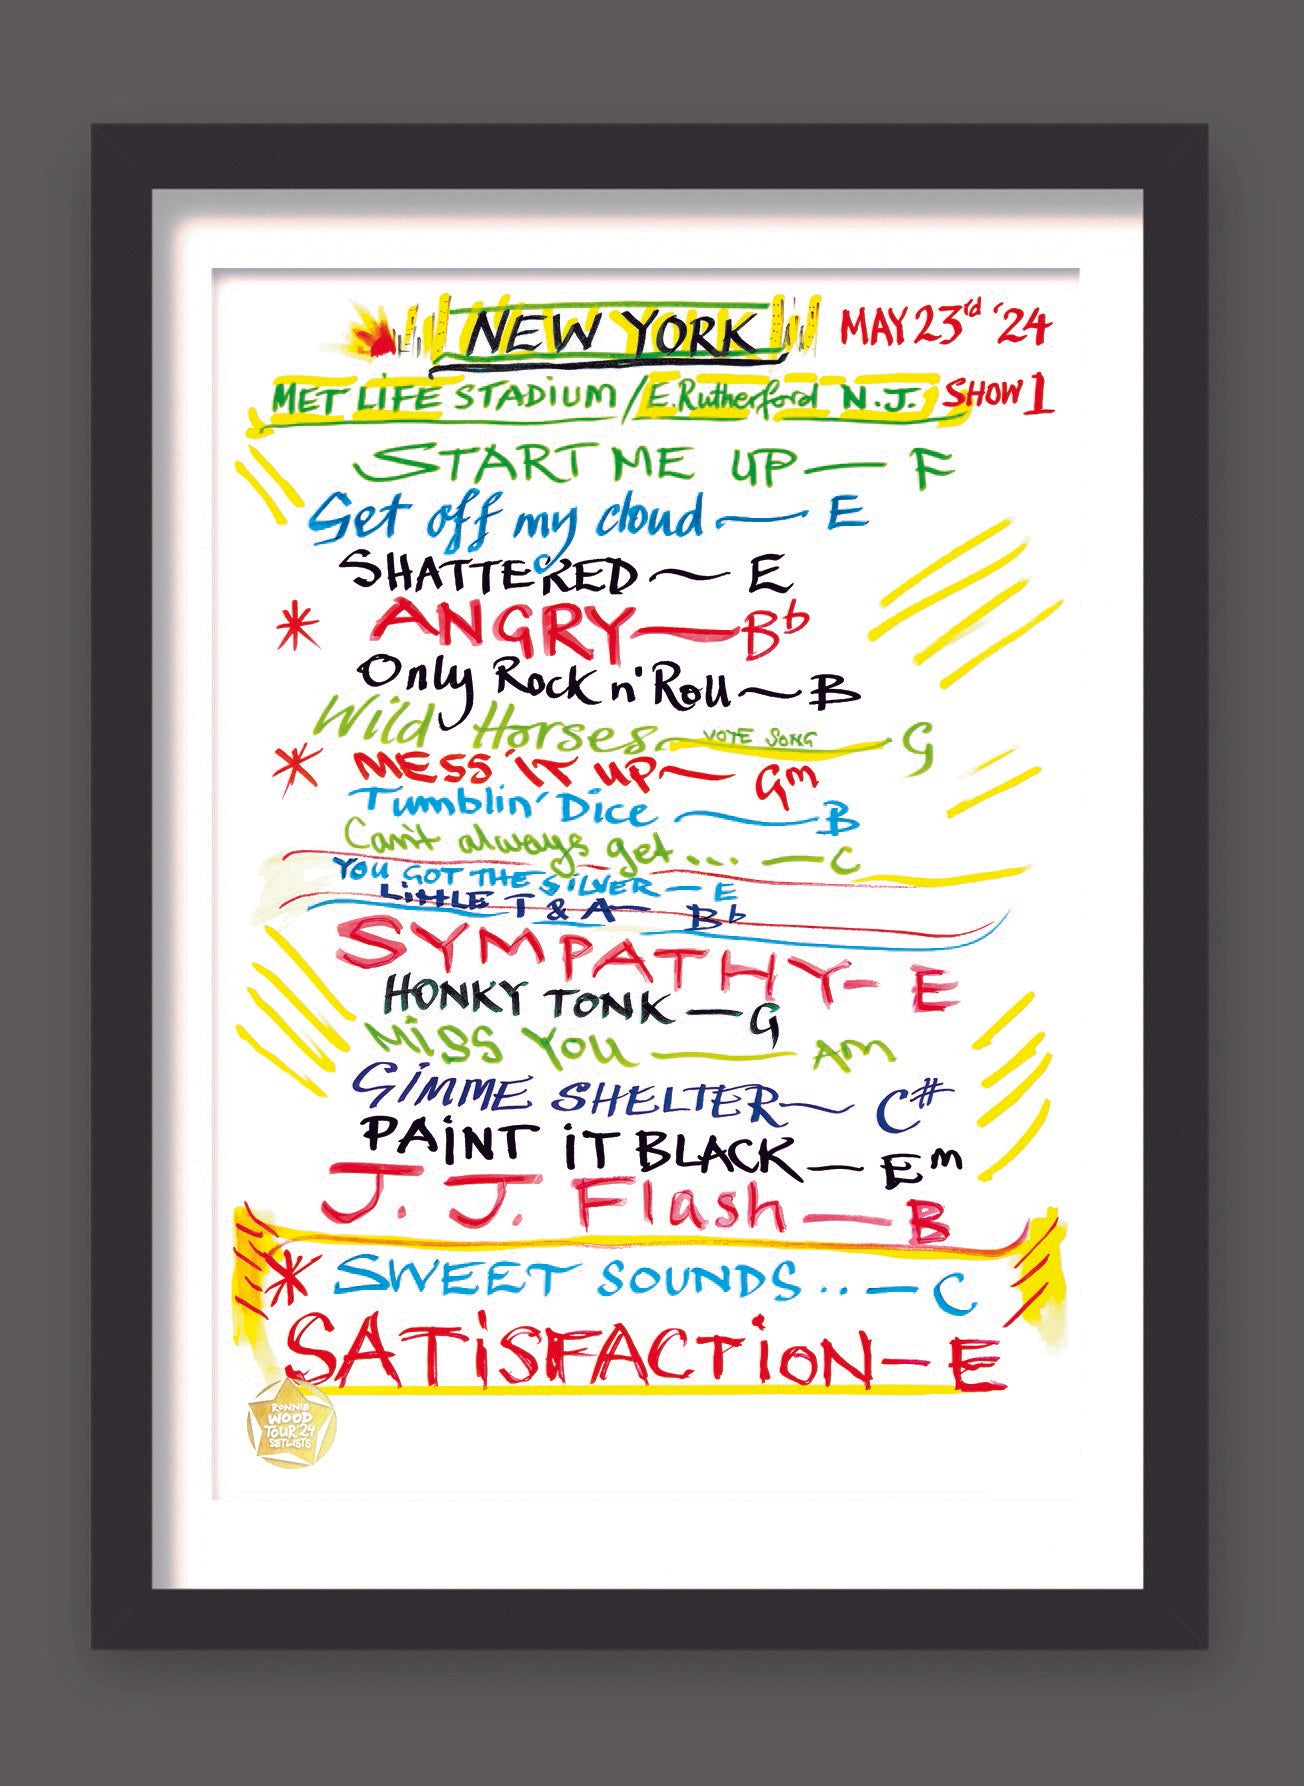 NEW YORK MAY 23rd '24
MET LIFE STADIUM / E. Rutherford N.J. SHOW 1
START ME UP — F
Get off my cloud — E
SHATTERED — E
* ANGRY — Bb
Only Rock n' Roll — B
Wild Horses — VOTE SONG — G
* MESS IT UP — Gm
Tumblin' Dice — B
Can't always get... — C
YOU GOT THE SILVER — E
LITTLE T & A — Bb
SYMPATHY — E
HONKY TONK — G
MISS YOU — AM
GIMME SHELTER — C#
PAINT IT BLACK — Em
J. J. Flash — B
* SWEET SOUNDS .. — C
SATISFACTION — E
RONNIE
WOOD
TOUR '24
SETLISTS